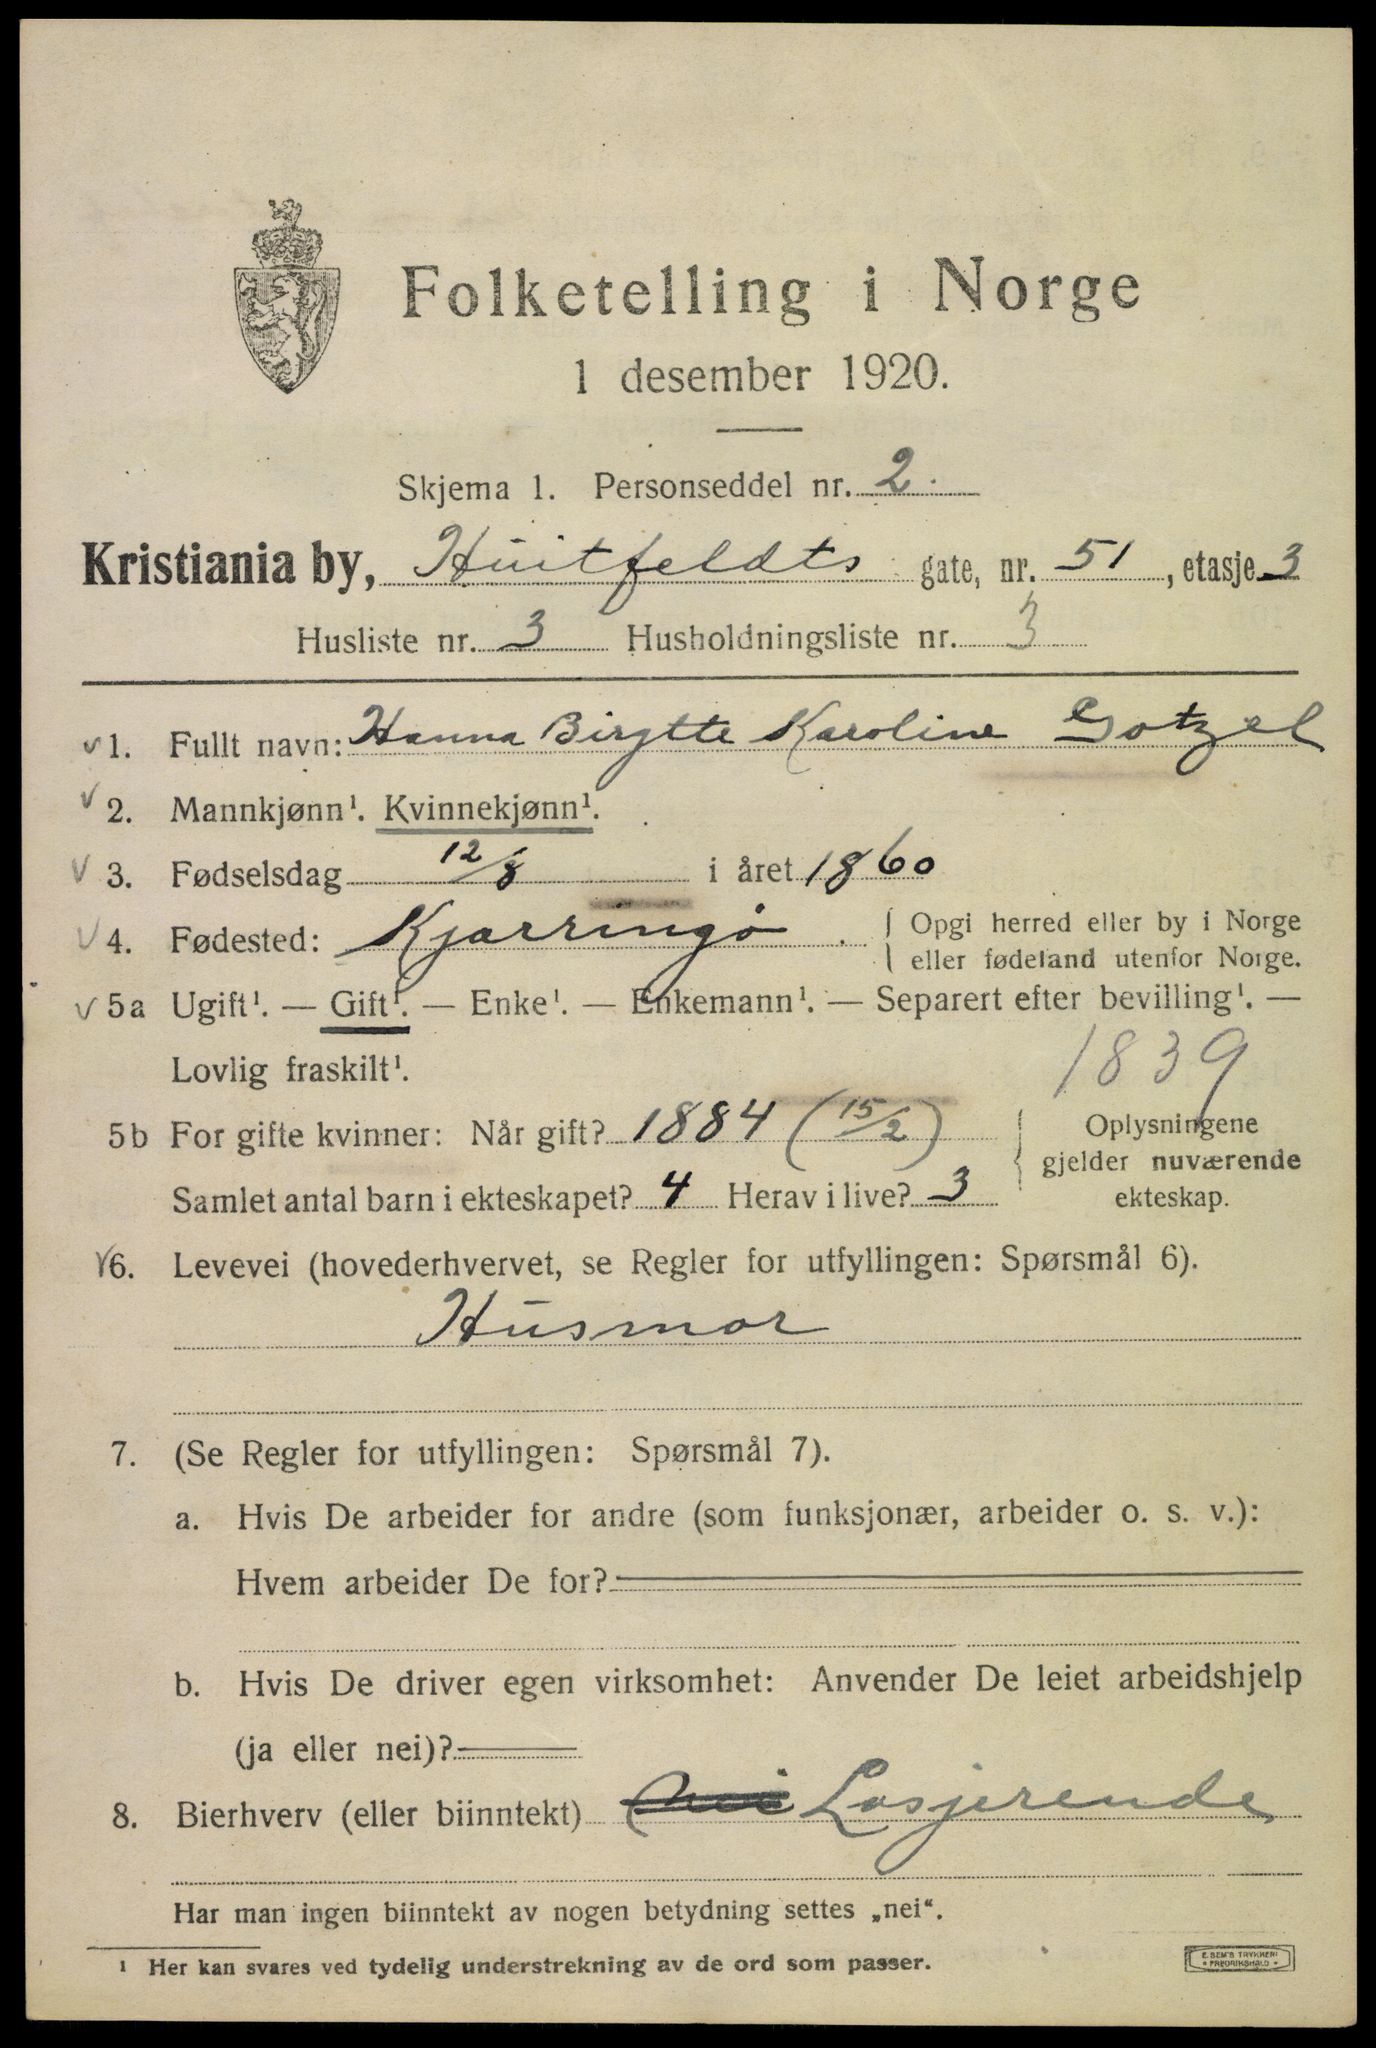 Folketelling i Norge
1 desember 1920.
Skjema 1. Personseddel nr. 2.
Kristiania by, Huitfeldts gate, nr. 51, etasje 3
Husliste nr. 3 Husholdningsliste nr. 3
1. Fullt navn: Hanna Birgitte Karoline Gotzel
2. Mannkjønn¹. Kvinnekjønn¹.
3. Fødselsdag 12/8 i året 1860
4. Fødested: Kjærringø. { Opgi herred eller by i Norge
eller fødeland utenfor Norge.
5a Ugift¹. — Gift¹. — Enke¹. — Enkemann¹. — Separert efter bevilling¹. —
Lovlig fraskilt¹.
1839
5b For gifte kvinner: Når gift? 1884 (15/2) { Oplysningene
gjelder nuværende
Samlet antal barn i ekteskapet? 4 Herav i live? 3
ekteskap.
6. Levevei (hovederhvervet, se Regler for utfyllingen: Spørsmål 6).
Husmor
7. (Se Regler for utfyllingen: Spørsmål 7).
a. Hvis De arbeider for andre (som funksjonær, arbeider o. s. v.):
Hvem arbeider De for?
b. Hvis De driver egen virksomhet: Anvender De leiet arbeidshjelp
(ja eller nei)?
8. Bierhverv (eller biinntekt) Nei Losjerende
Har man ingen biinntekt av nogen betydning settes „nei“.
¹ Her kan svares ved tydelig understrekning av de ord som passer.
E. SEM'S TRYKKERI
• FREDRIKSHALD •